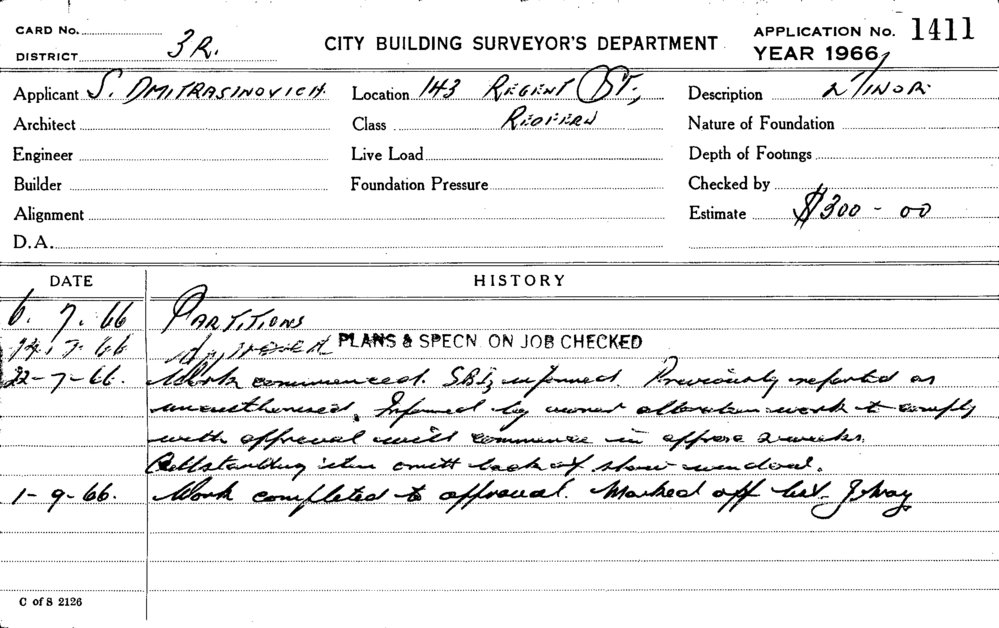 CARD No.
DISTRICT 3R.
CITY BUILDING SURVEYOR'S DEPARTMENT
APPLICATION No. 1411
YEAR 1966
Applicant S. DMITRASINOVICH. Location 143 REGENT ST, Description MINOR.
Architect Class REDFERN Nature of Foundation
Engineer Live Load Depth of Footings
Builder Foundation Pressure Checked by
Alignment Estimate $300-00
D.A.
DATE HISTORY
6.7.66 PARTITIONS
14.7.66 APPROVED PLANS & SPECN. ON JOB CHECKED
22-7-66. Work commenced. informed. Previously reported as
unauthorised. Informed by owner alteration work to comply
with approval will commence in approx 2 weeks.
Outstanding item omit back of show window.
1-9-66. Work completed to approval. Marked off list.
C of S 2126